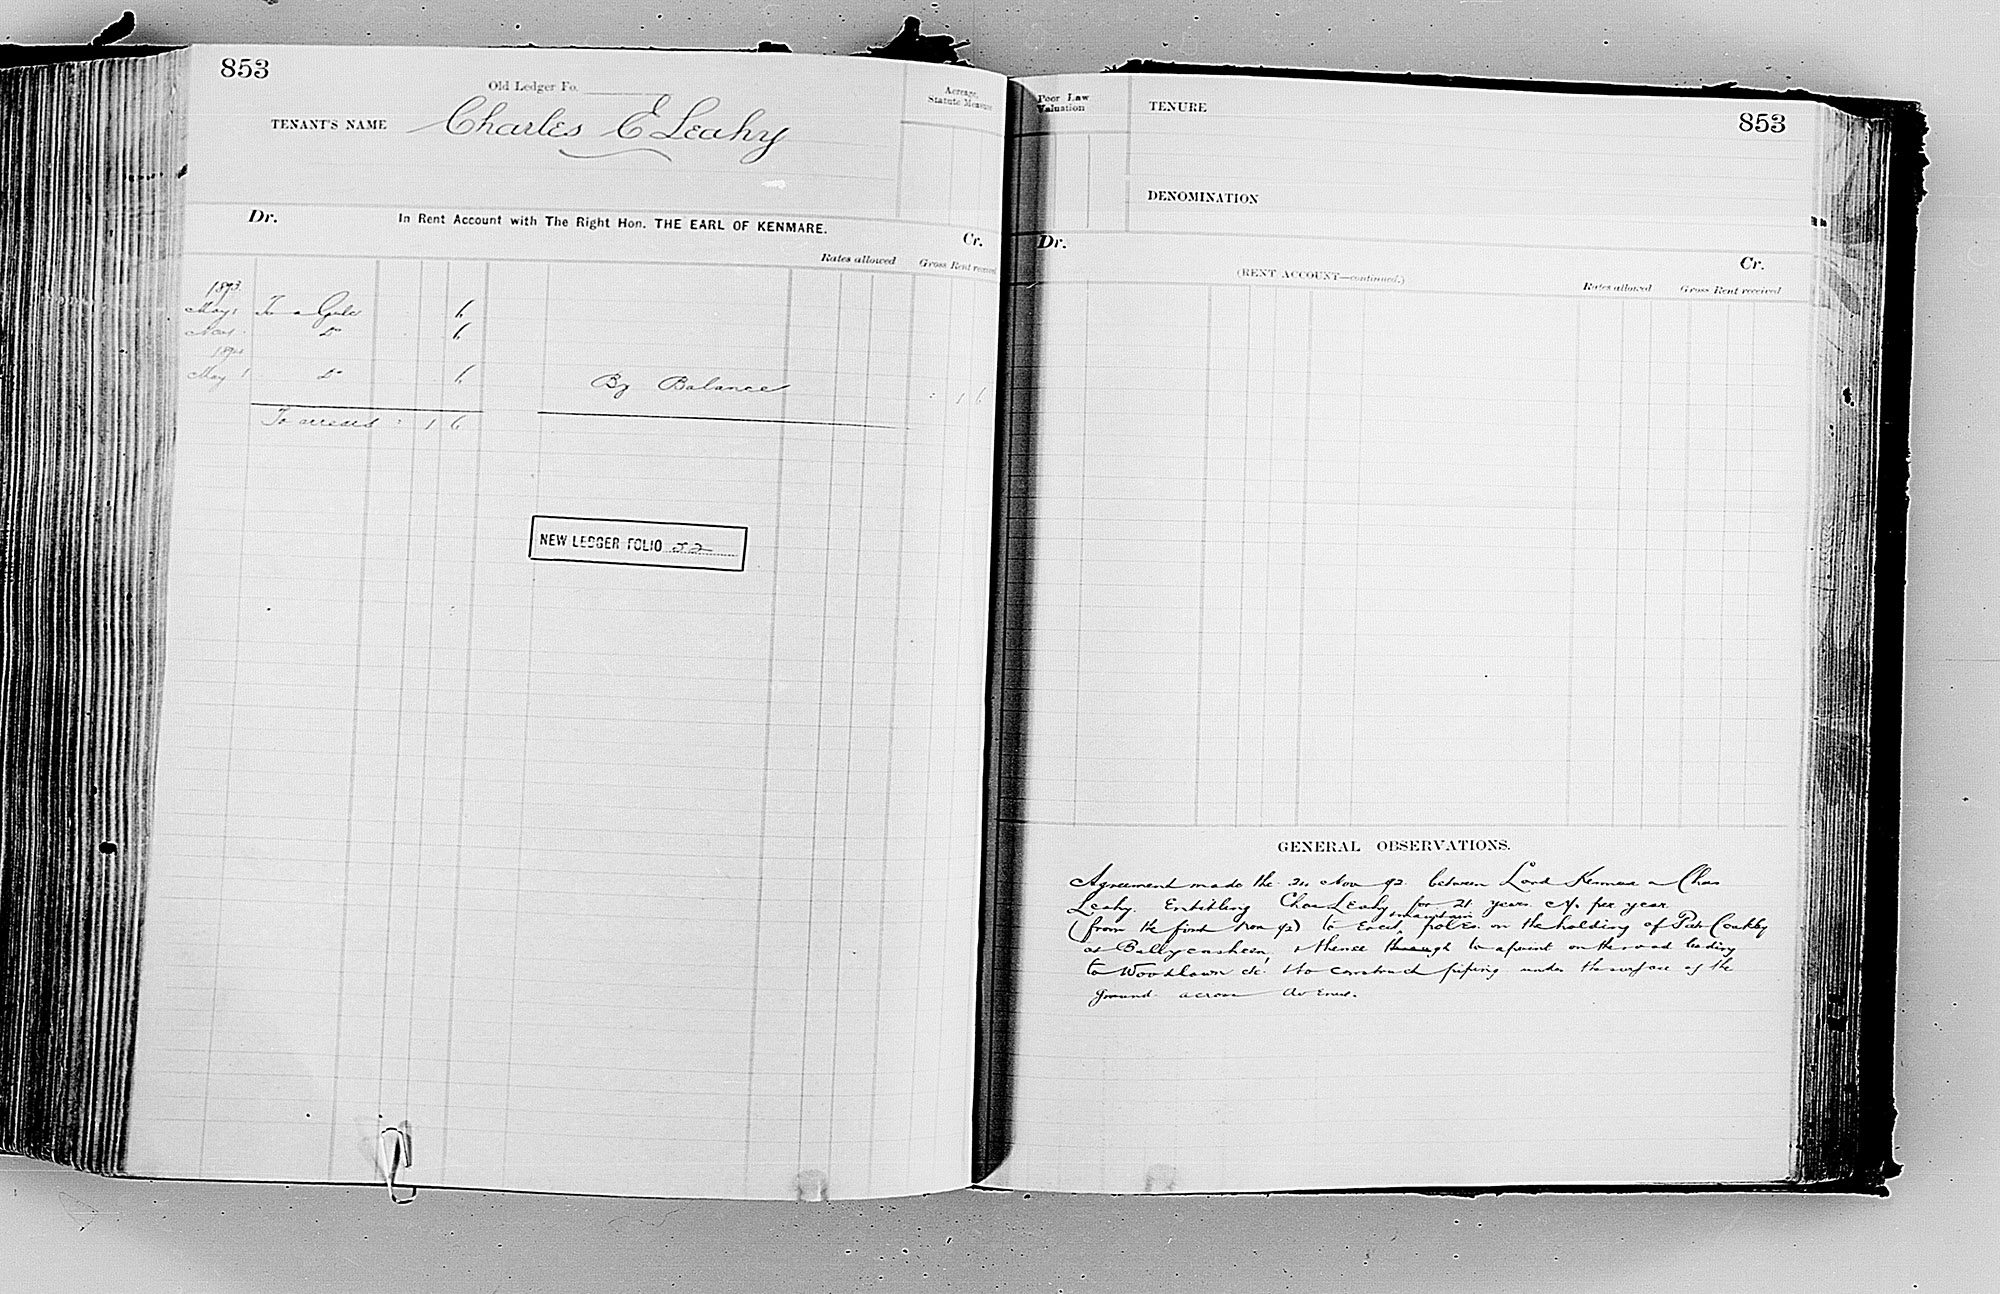 853
Old Ledger Fo.
TENANT'S NAME Charles E Leahy
Acreage, Statute Measure
Dr. In Rent Account with The Right Hon. THE EARL OF KENMARE. Cr.
Rates allowed Gross Rent received
1893
May 1 To a Gale 6
Nov. Do 6
1894
May 1 Do 6 By Balance 1 6
To arrears 1 6
NEW LEDGER FOLIO 52
Poor Law Valuation
TENURE
853
DENOMINATION
Dr. Cr.
(RENT ACCOUNT—continued.)
Rates allowed Gross Rent received
GENERAL OBSERVATIONS.
Agreement made the 21 Nov 92 between Lord Kenmare & Chas
Leahy. Entitling Chas Leahy for 21 years at 1/- per year
(from the first Nov 92) to Erect, maintain poles. on the holding of Pat Coakley
at Ballycasheen, & thence through to a point on the road leading
to Woodlawn &c. & to construct piping under the surface of the
ground across avenue.